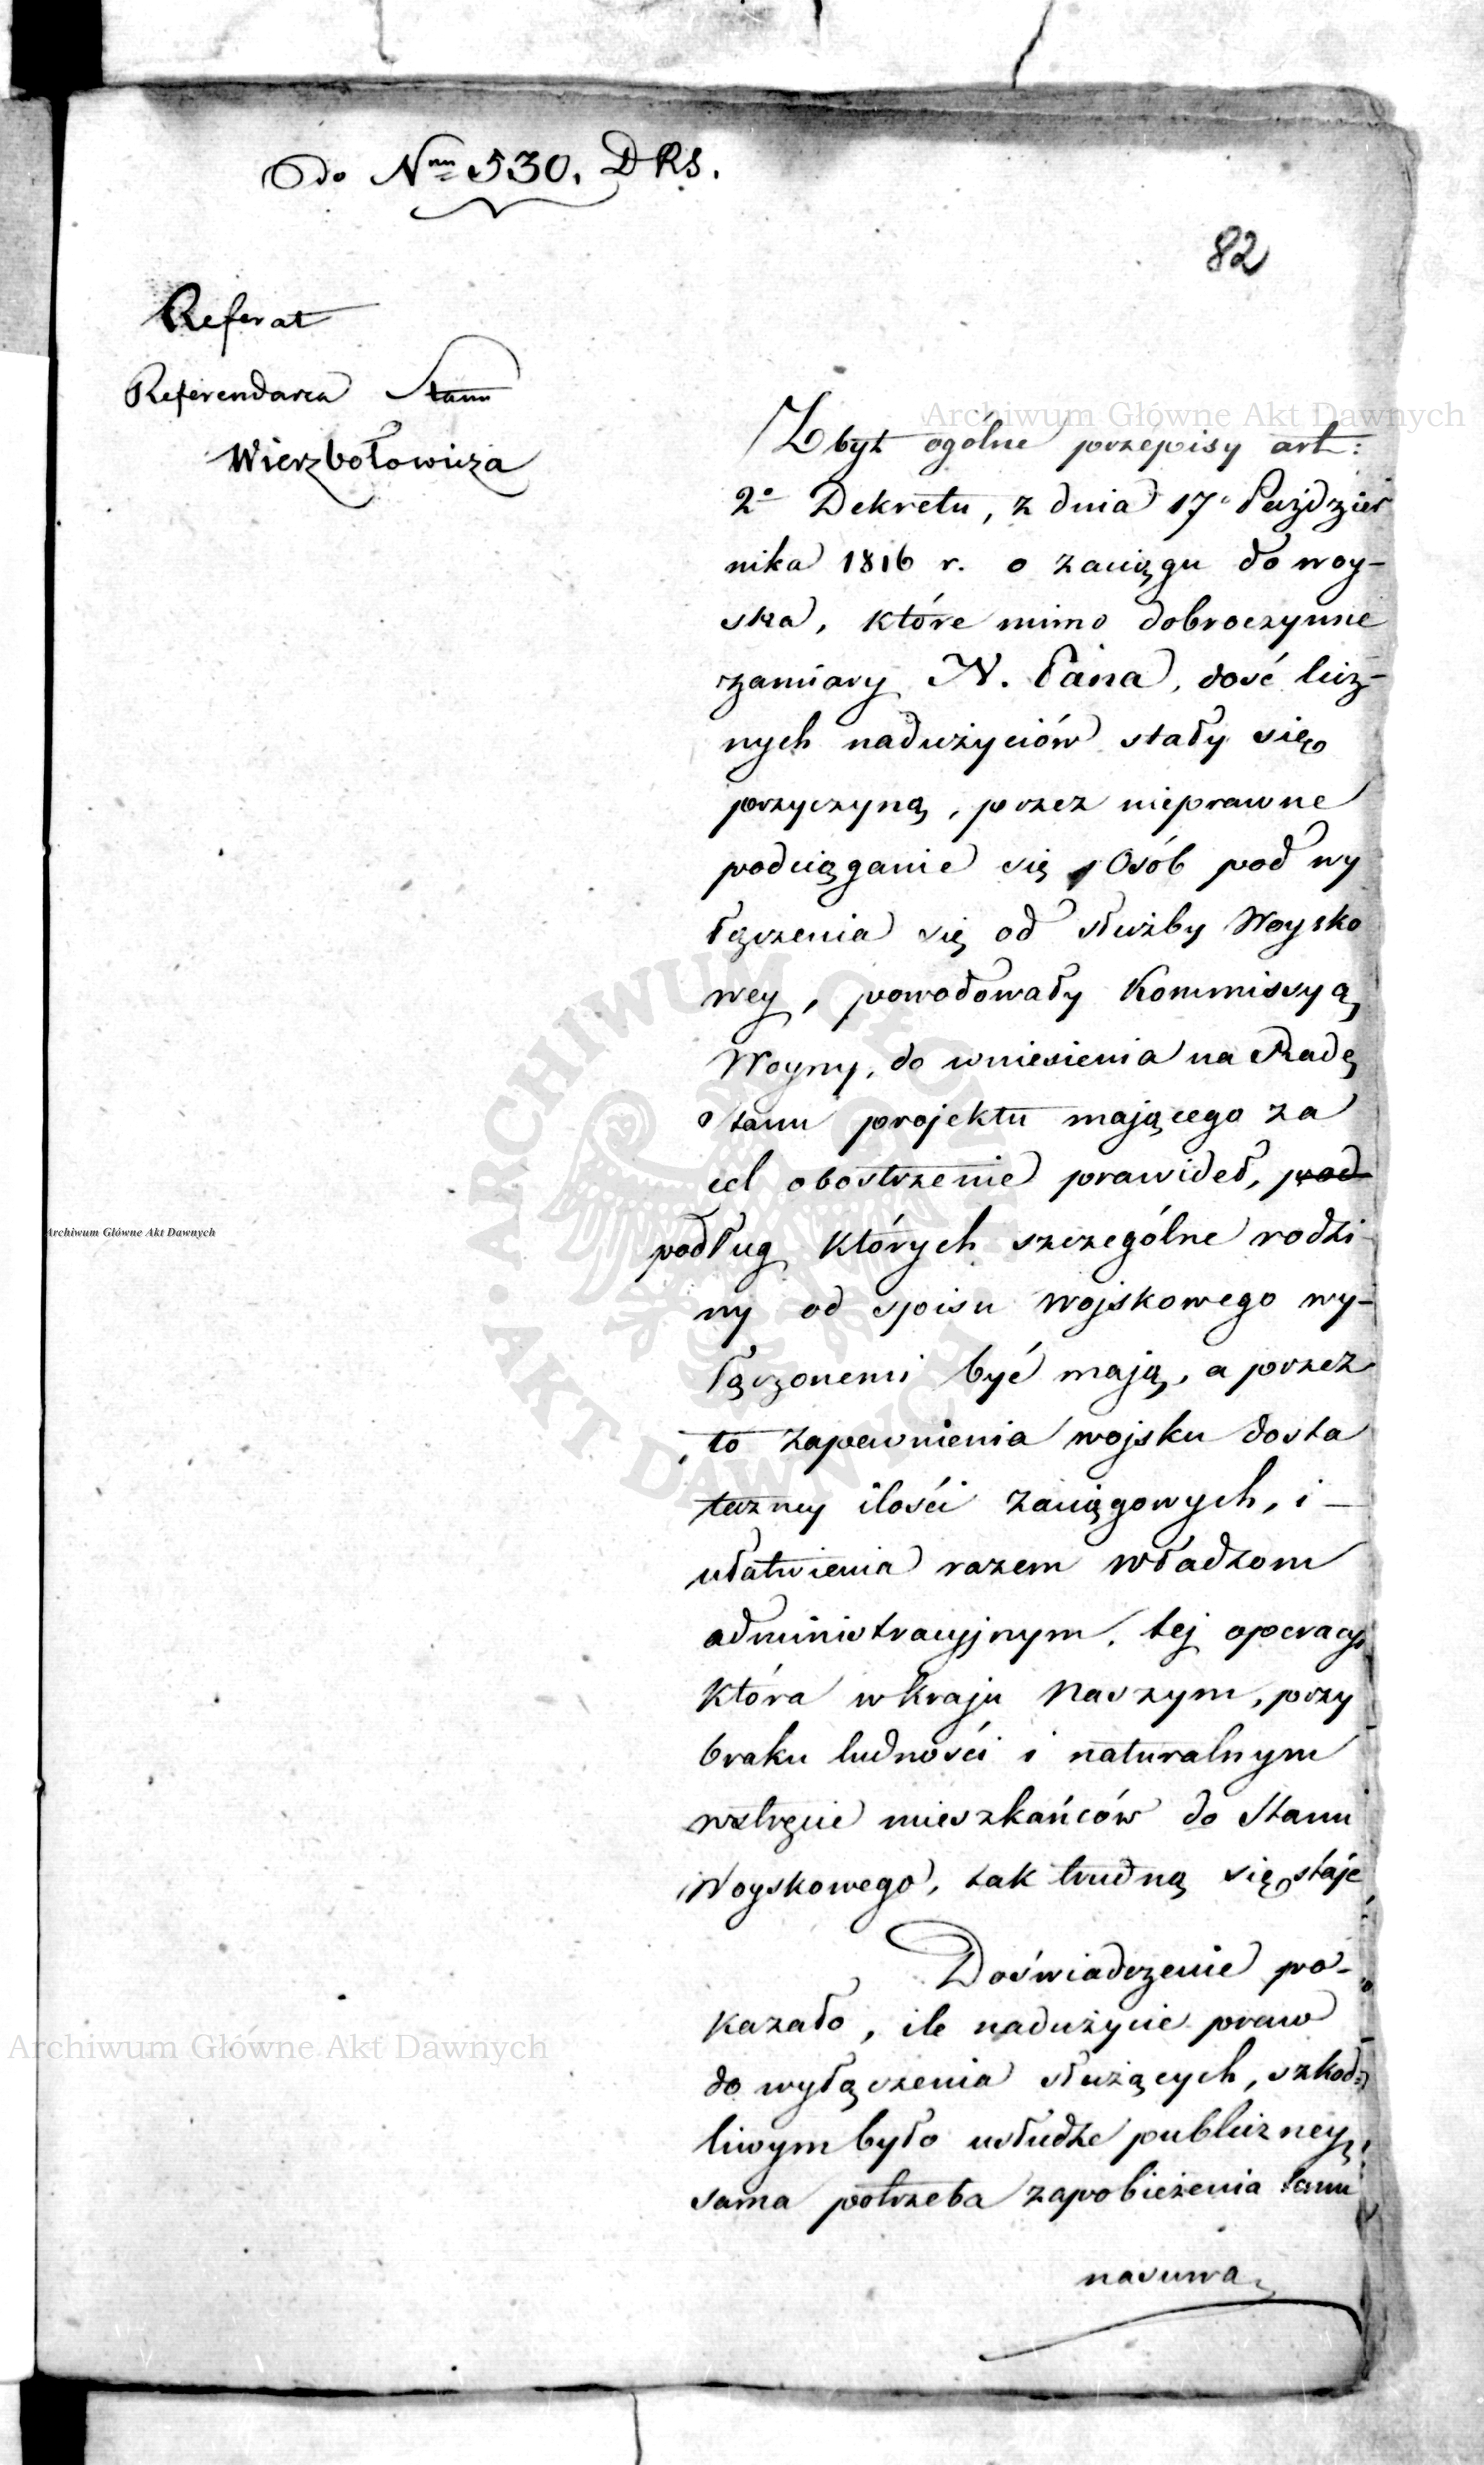 Do Nru 530. DRS.
82
Referat
Referendarza Stanu
Wierzbołowicza
Zbyt ogólne przepisy art:
2o Dekretu, z dnia 17o Paździer
nika 1816 r. o zaciągu do woy-
ska, które mimo dobroczynne
zamiary N. Pana, dość licz-
nych nadużyciów stały się
przyczyną, przez nieprawne
podciąganie się Osób pod wy
łączenia się od służby Woysko
wey, powodowały Kommissyą
Woyny, do wniesienia na Radę
Stanu projektu mającego za
cel obostrzenie prawideł, pod
podług których szczególne rodzi-
ny od spisu wojskowego wy-
łączonemi być mają, a przez
to zapewnienia wojsku dosta
teczney ilości zaciągowych, i
ułatwienia razem władzom
administracyjnym, tej operacyi
która w kraju Naszym, przy
braku ludności i naturalnym
wstręcie mieszkańców do Stanu
Woyskowego, tak trudną się staje
Doświadczenie po-
kazało, ile nadużycie praw
do wyłączenia służących, szkod-
liwym było usłudze publiczney,
sama potrzeba zapobieżenia temu
nasuwa
Archiwum Główne Akt Dawnych
Archiwum Główne Akt Dawnych
Archiwum Główne Akt Dawnych
ARCHIWUM GŁÓWNE AKT DAWNYCH